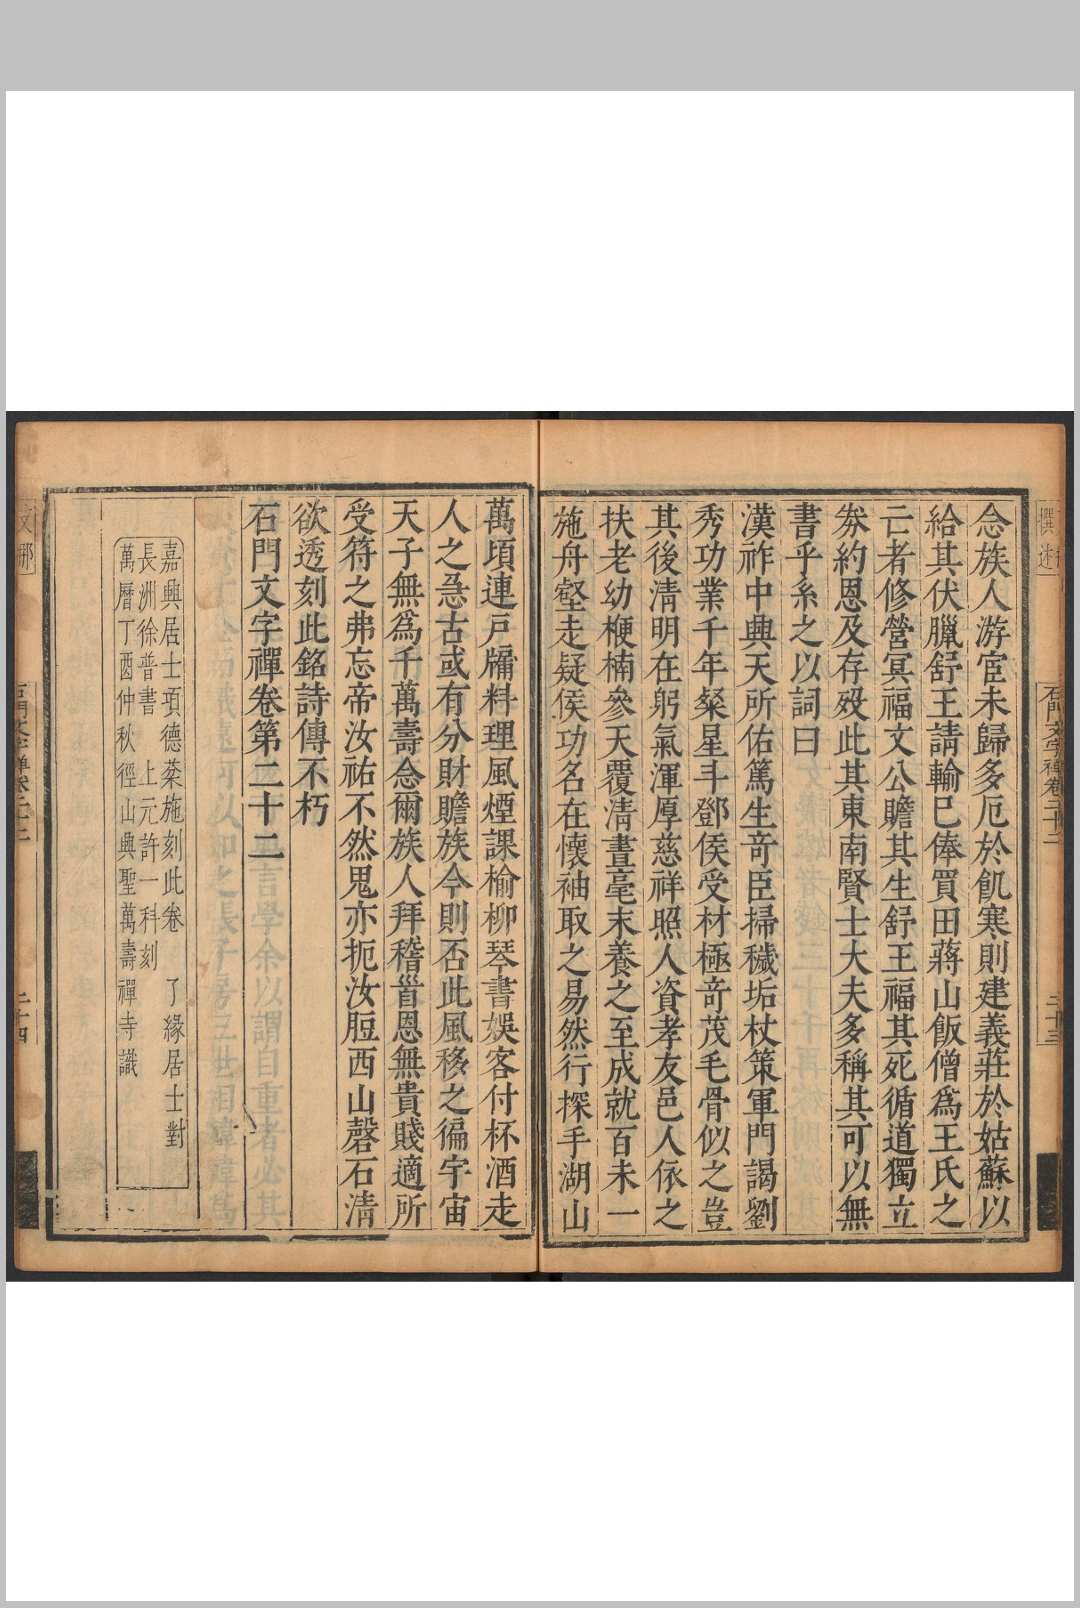 念族人游宦未歸多厄於飢寒則建義莊於姑蘇以
給其伏臘舒王請輸巳俸買田蔣山飯僧為王氏之
亡者修營冥福文公贍其生舒王福其死循道獨立
劵約恩及存歿此其東南賢士大夫多稱其可以無
書乎系之以詞曰
漢祚中興天所佑篤生竒臣掃穢垢杖策軍門謁劉
秀功業千年粲星斗鄧侯受材極竒茂毛骨似之豈
其後清明在躬氣渾厚慈祥照人資孝友邑人依之
扶老幼梗楠參天覆清晝毫末養之至成就百未一
施舟壑走疑侯功名在懷袖取之易然行探手湖山
萬頃連戶牖料理風煙課榆柳琴書娛客付杯酒走
人之急古或有分財贍族今則否此風移之徧宇宙
天子無為千萬壽念爾族人拜稽首恩無貴賤適所
受符之弗忘帝汝祐不然鬼亦扼汝脰西山磬石清
欲透刻此銘詩傳不朽
石門文字禪卷第二十二
嘉興居士項德棻施刻此卷 了緣居士對
長洲徐普書 上元許一科刻
萬曆丁酉仲秋徑山興聖萬壽禪寺識
石門文字禪卷二十二
二十三
二十四